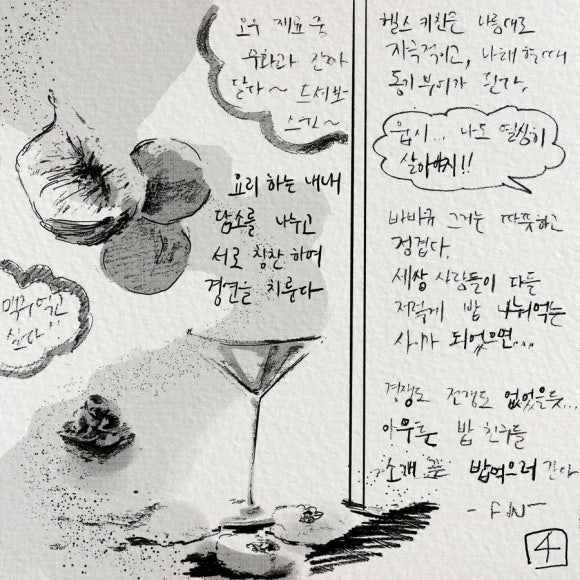 요우 재료 중
무화과 진짜
달다~ 드셔보
스진~
요리 하는 내내
담소를 나누고
서로 칭찬하며
경연을 치룬다
맥주먹고
싶다!!
헬스 키친은 나름대로
자극적이고, 나태할때
동기부여가 된다.
읍시... 나도 열심히
살아야지!!
바바큐 그거는 따뜻하고
정겹다.
세상 사람들이 다들
저렇게 밥 나눠먹는
사이가 되었으면...
경쟁도 전쟁도 없었을듯...
아무튼 밥 친구들
소개 끝 밥먹으러 간다
- FIN -
4